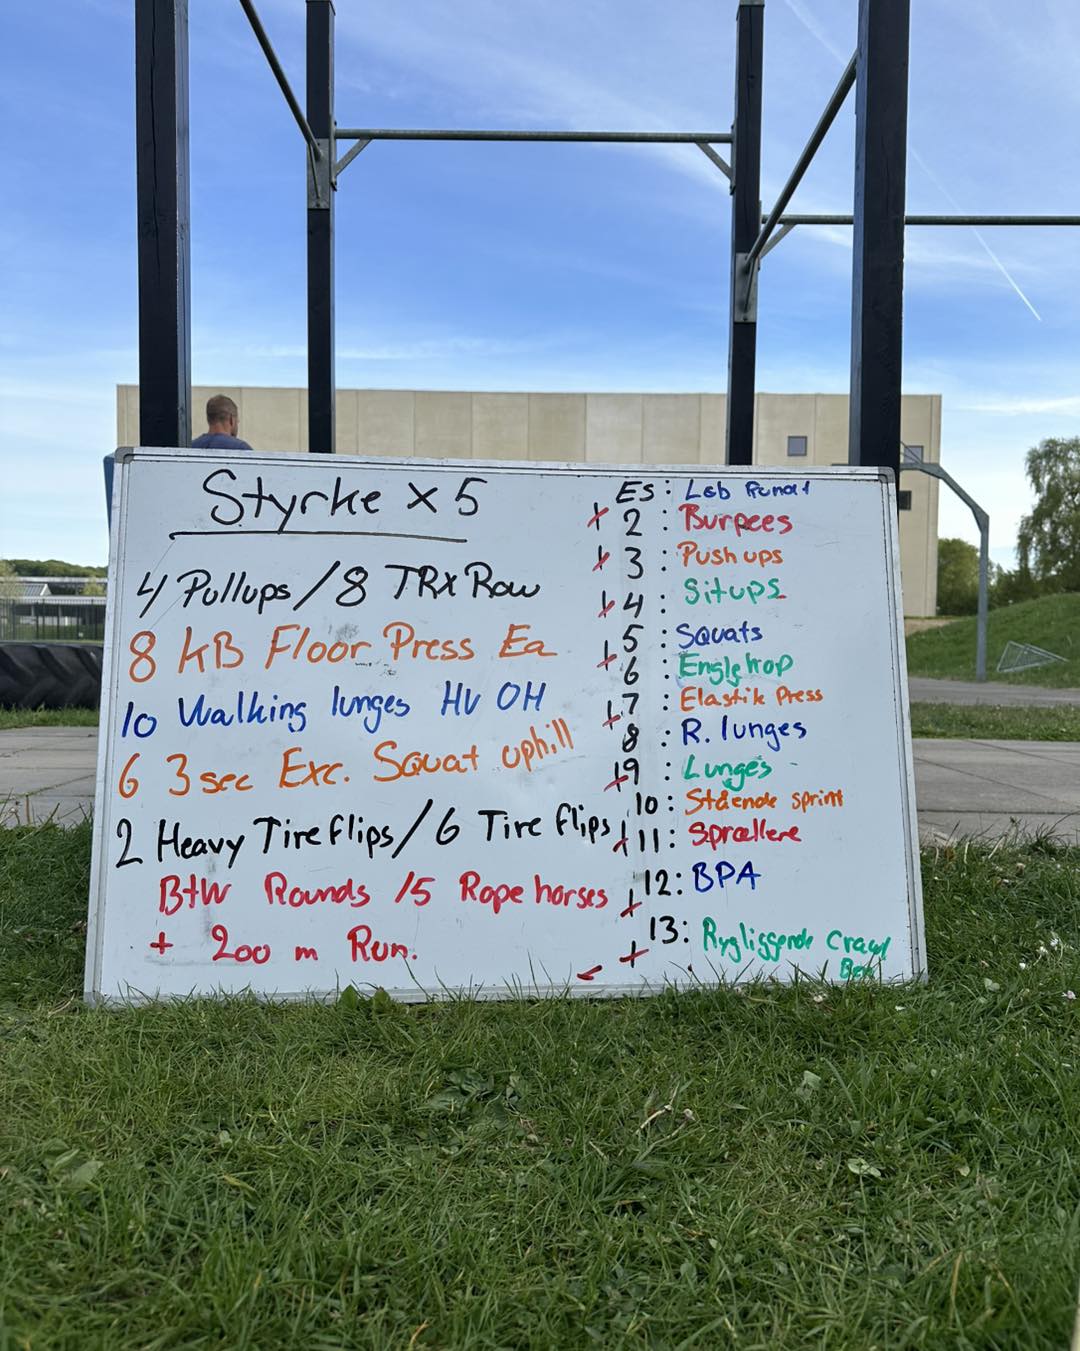 Styrke x 5
4 Pullups / 8 TRX Row
8 KB Floor Press Ea
10 Walking lunges HV OH
6 3 sec Exc. Squat uphill
2 Heavy Tire flips / 6 Tire flips
BtW Rounds 15 Rope horses
+ 200 m Run.
Es : Løb Rundt
x 2 : Burpees
x 3 : Push ups
x 4 : Situps
5 : Squats
x 6 : Englehop
x 7 : Elastik Press
8 : R. lunges
x 9 : Lunges
10 : Stående sprint
x 11 : Sprællere
12 : BPA
x 13 : Rygliggende Crawl
Ben